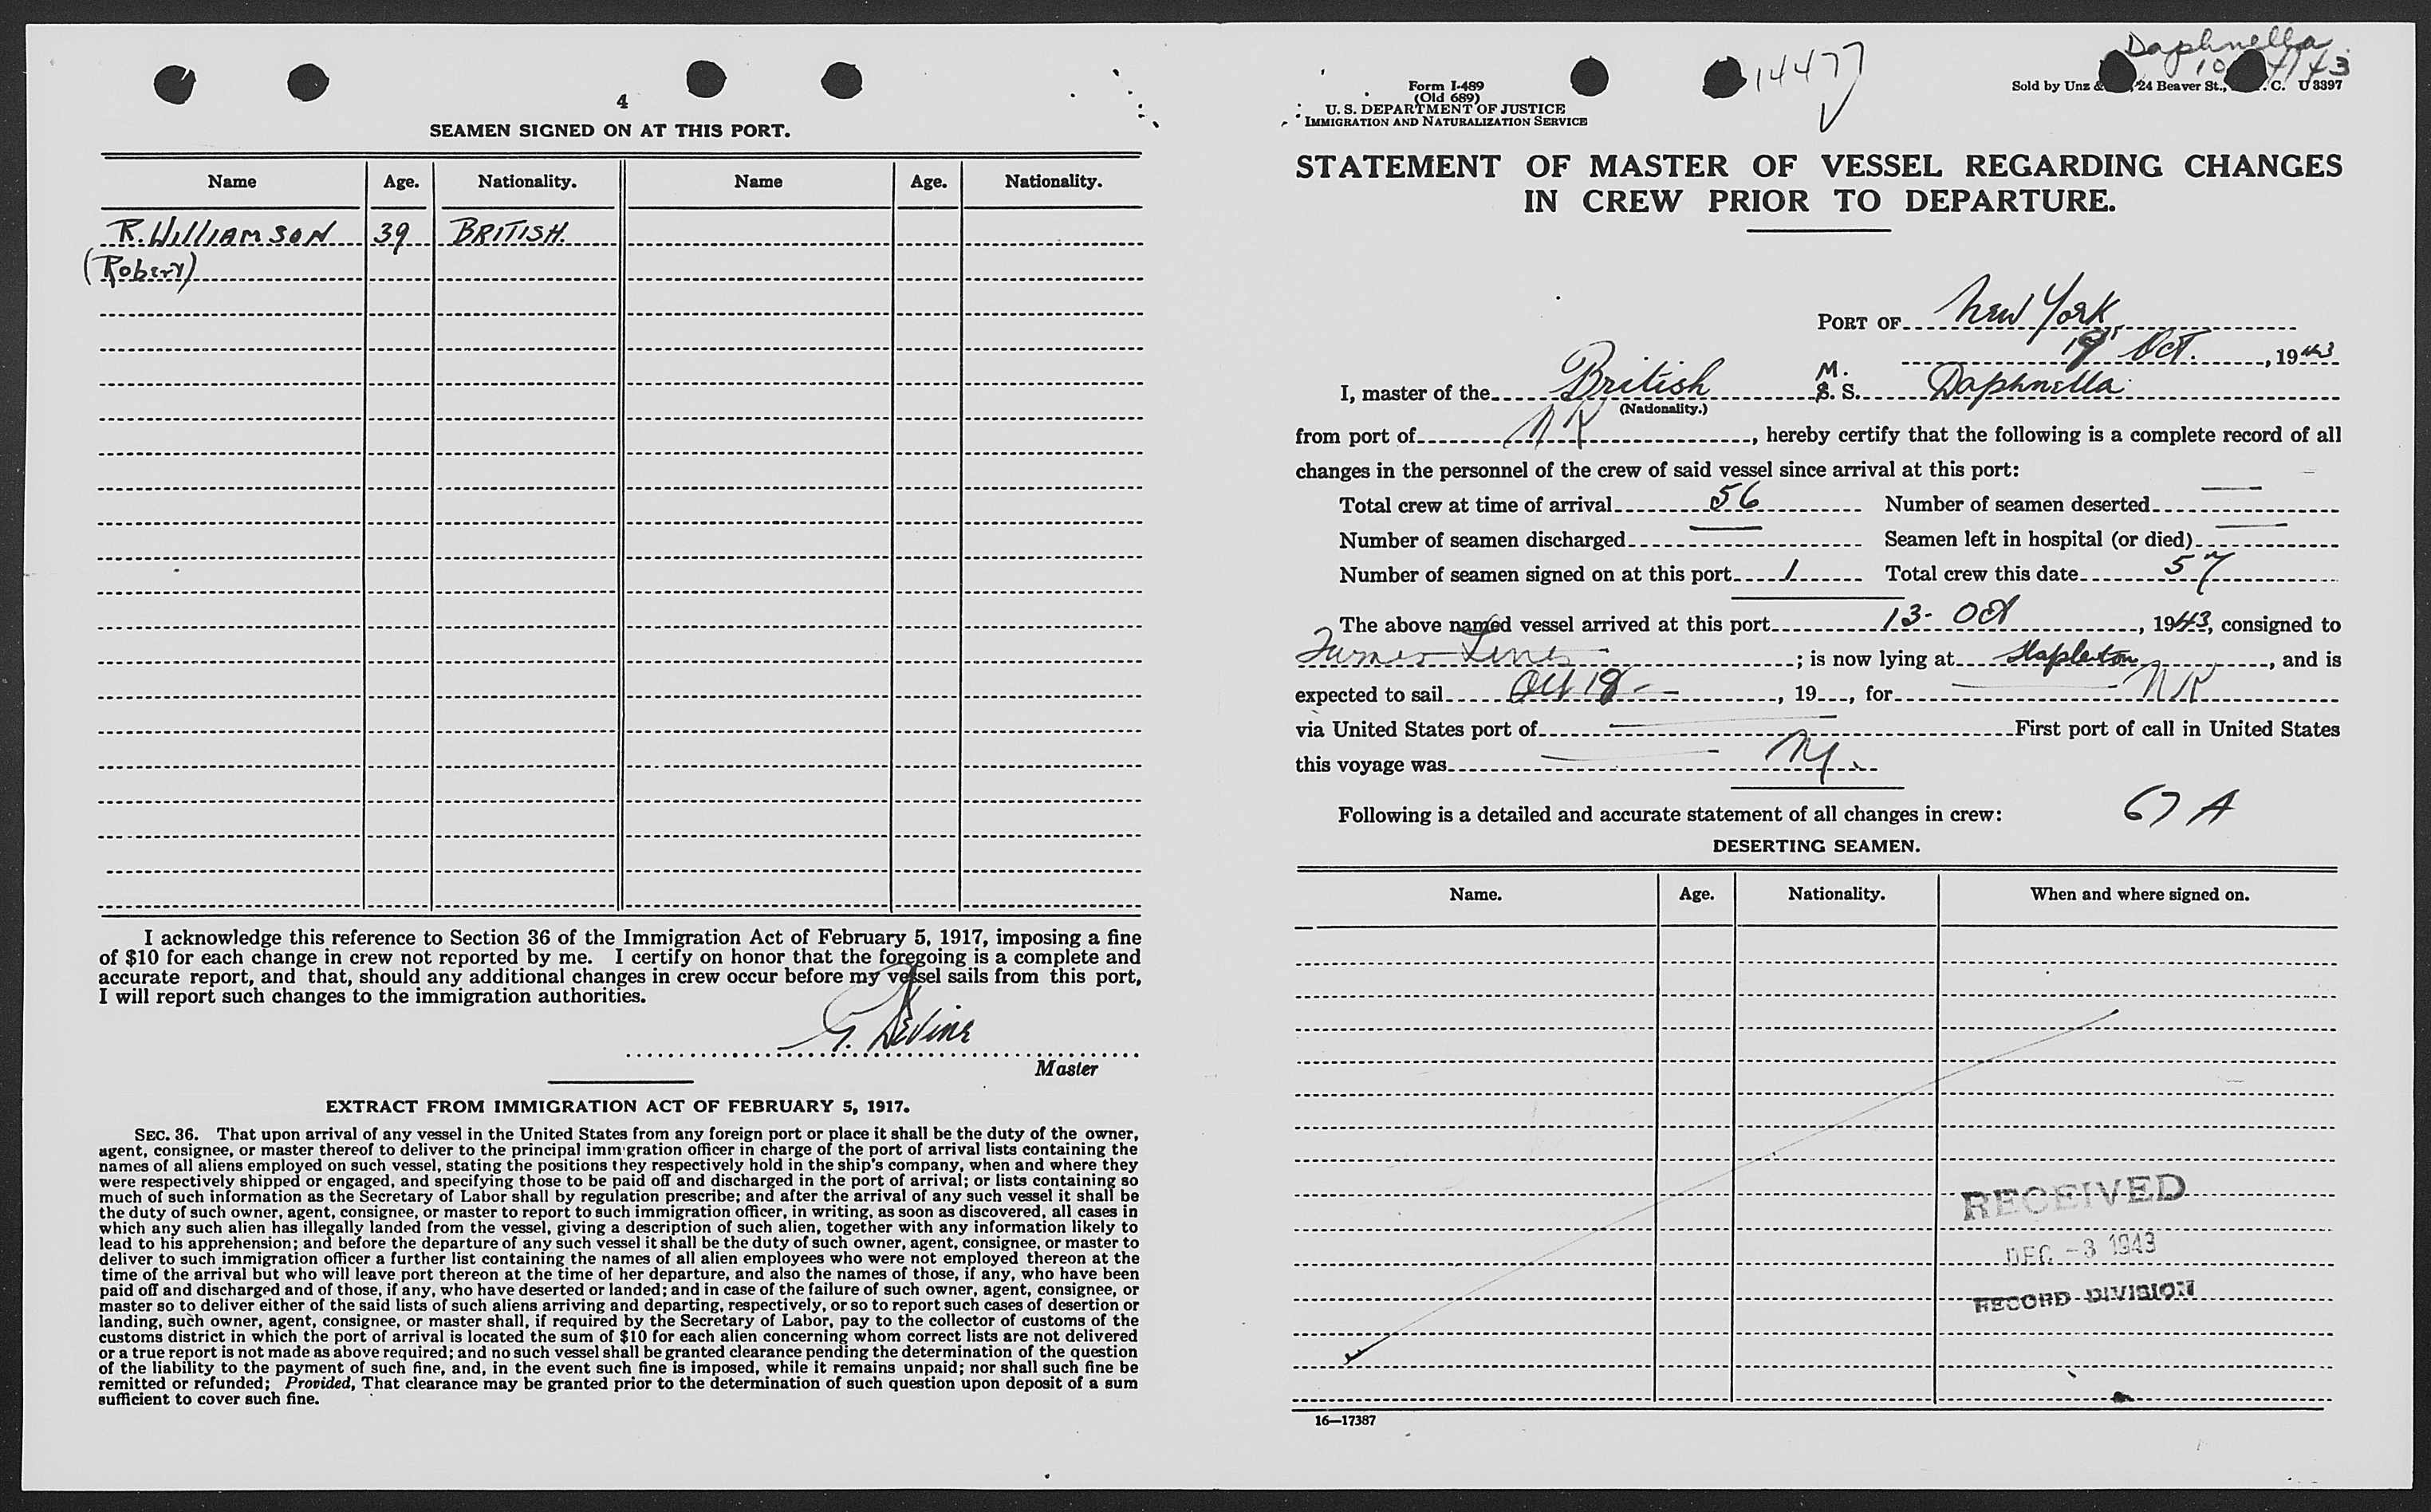 4
SEAMEN SIGNED ON AT THIS PORT.
Name Age. Nationality. Name Age. Nationality.
R. WILLIAMSON 39 BRITISH.
(Robert)
I acknowledge this reference to Section 36 of the Immigration Act of February 5, 1917, imposing a fine
of $10 for each change in crew not reported by me. I certify on honor that the foregoing is a complete and
accurate report, and that, should any additional changes in crew occur before my vessel sails from this port,
I will report such changes to the immigration authorities.
G. Devine
Master
EXTRACT FROM IMMIGRATION ACT OF FEBRUARY 5, 1917.
SEC. 36. That upon arrival of any vessel in the United States from any foreign port or place it shall be the duty of the owner,
agent, consignee, or master thereof to deliver to the principal immigration officer in charge of the port of arrival lists containing the
names of all aliens employed on such vessel, stating the positions they respectively hold in the ship's company, when and where they
were respectively shipped or engaged, and specifying those to be paid off and discharged in the port of arrival; or lists containing so
much of such information as the Secretary of Labor shall by regulation prescribe; and after the arrival of any such vessel it shall be
the duty of such owner, agent, consignee, or master to report to such immigration officer, in writing, as soon as discovered, all cases in
which any such alien has illegally landed from the vessel, giving a description of such alien, together with any information likely to
lead to his apprehension; and before the departure of any such vessel it shall be the duty of such owner, agent, consignee, or master to
deliver to such immigration officer a further list containing the names of all alien employees who were not employed thereon at the
time of the arrival but who will leave port thereon at the time of her departure, and also the names of those, if any, who have been
paid off and discharged and of those, if any, who have deserted or landed; and in case of the failure of such owner, agent, consignee, or
master so to deliver either of the said lists of such aliens arriving and departing, respectively, or so to report such cases of desertion or
landing, such owner, agent, consignee, or master shall, if required by the Secretary of Labor, pay to the collector of customs of the
customs district in which the port of arrival is located the sum of $10 for each alien concerning whom correct lists are not delivered
or a true report is not made as above required; and no such vessel shall be granted clearance pending the determination of the question
of the liability to the payment of such fine, and, in the event such fine is imposed, while it remains unpaid; nor shall such fine be
remitted or refunded; Provided, That clearance may be granted prior to the determination of such question upon deposit of a sum
sufficient to cover such fine.
Daphnella
14477
Form I-489
(Old 689)
U. S. DEPARTMENT OF JUSTICE
IMMIGRATION AND NATURALIZATION SERVICE
Sold by Unz & 24 Beaver St., C. U 3397
STATEMENT OF MASTER OF VESSEL REGARDING CHANGES
IN CREW PRIOR TO DEPARTURE.
PORT OF New York
Oct. , 1943
I, master of the British M. S. S. Daphnella
(Nationality.)
from port of NK , hereby certify that the following is a complete record of all
changes in the personnel of the crew of said vessel since arrival at this port:
Total crew at time of arrival 56 Number of seamen deserted —
Number of seamen discharged — Seamen left in hospital (or died) —
Number of seamen signed on at this port 1 Total crew this date 57
The above named vessel arrived at this port 13- Oct , 1943, consigned to
Furness Line ; is now lying at Stapleton , and is
expected to sail Oct 18 - , 19 , for NK
via United States port of — First port of call in United States
this voyage was — NY.
Following is a detailed and accurate statement of all changes in crew: 67 A
DESERTING SEAMEN.
Name. Age. Nationality. When and where signed on.
RECEIVED
DEC -3 1943
RECORD DIVISION
16—17387